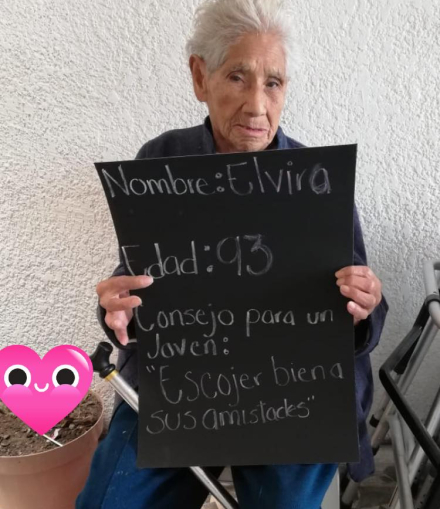 Nombre: Elvira
Edad: 93
Consejo para un
Joven:
"Escojer bien a
sus amistades"